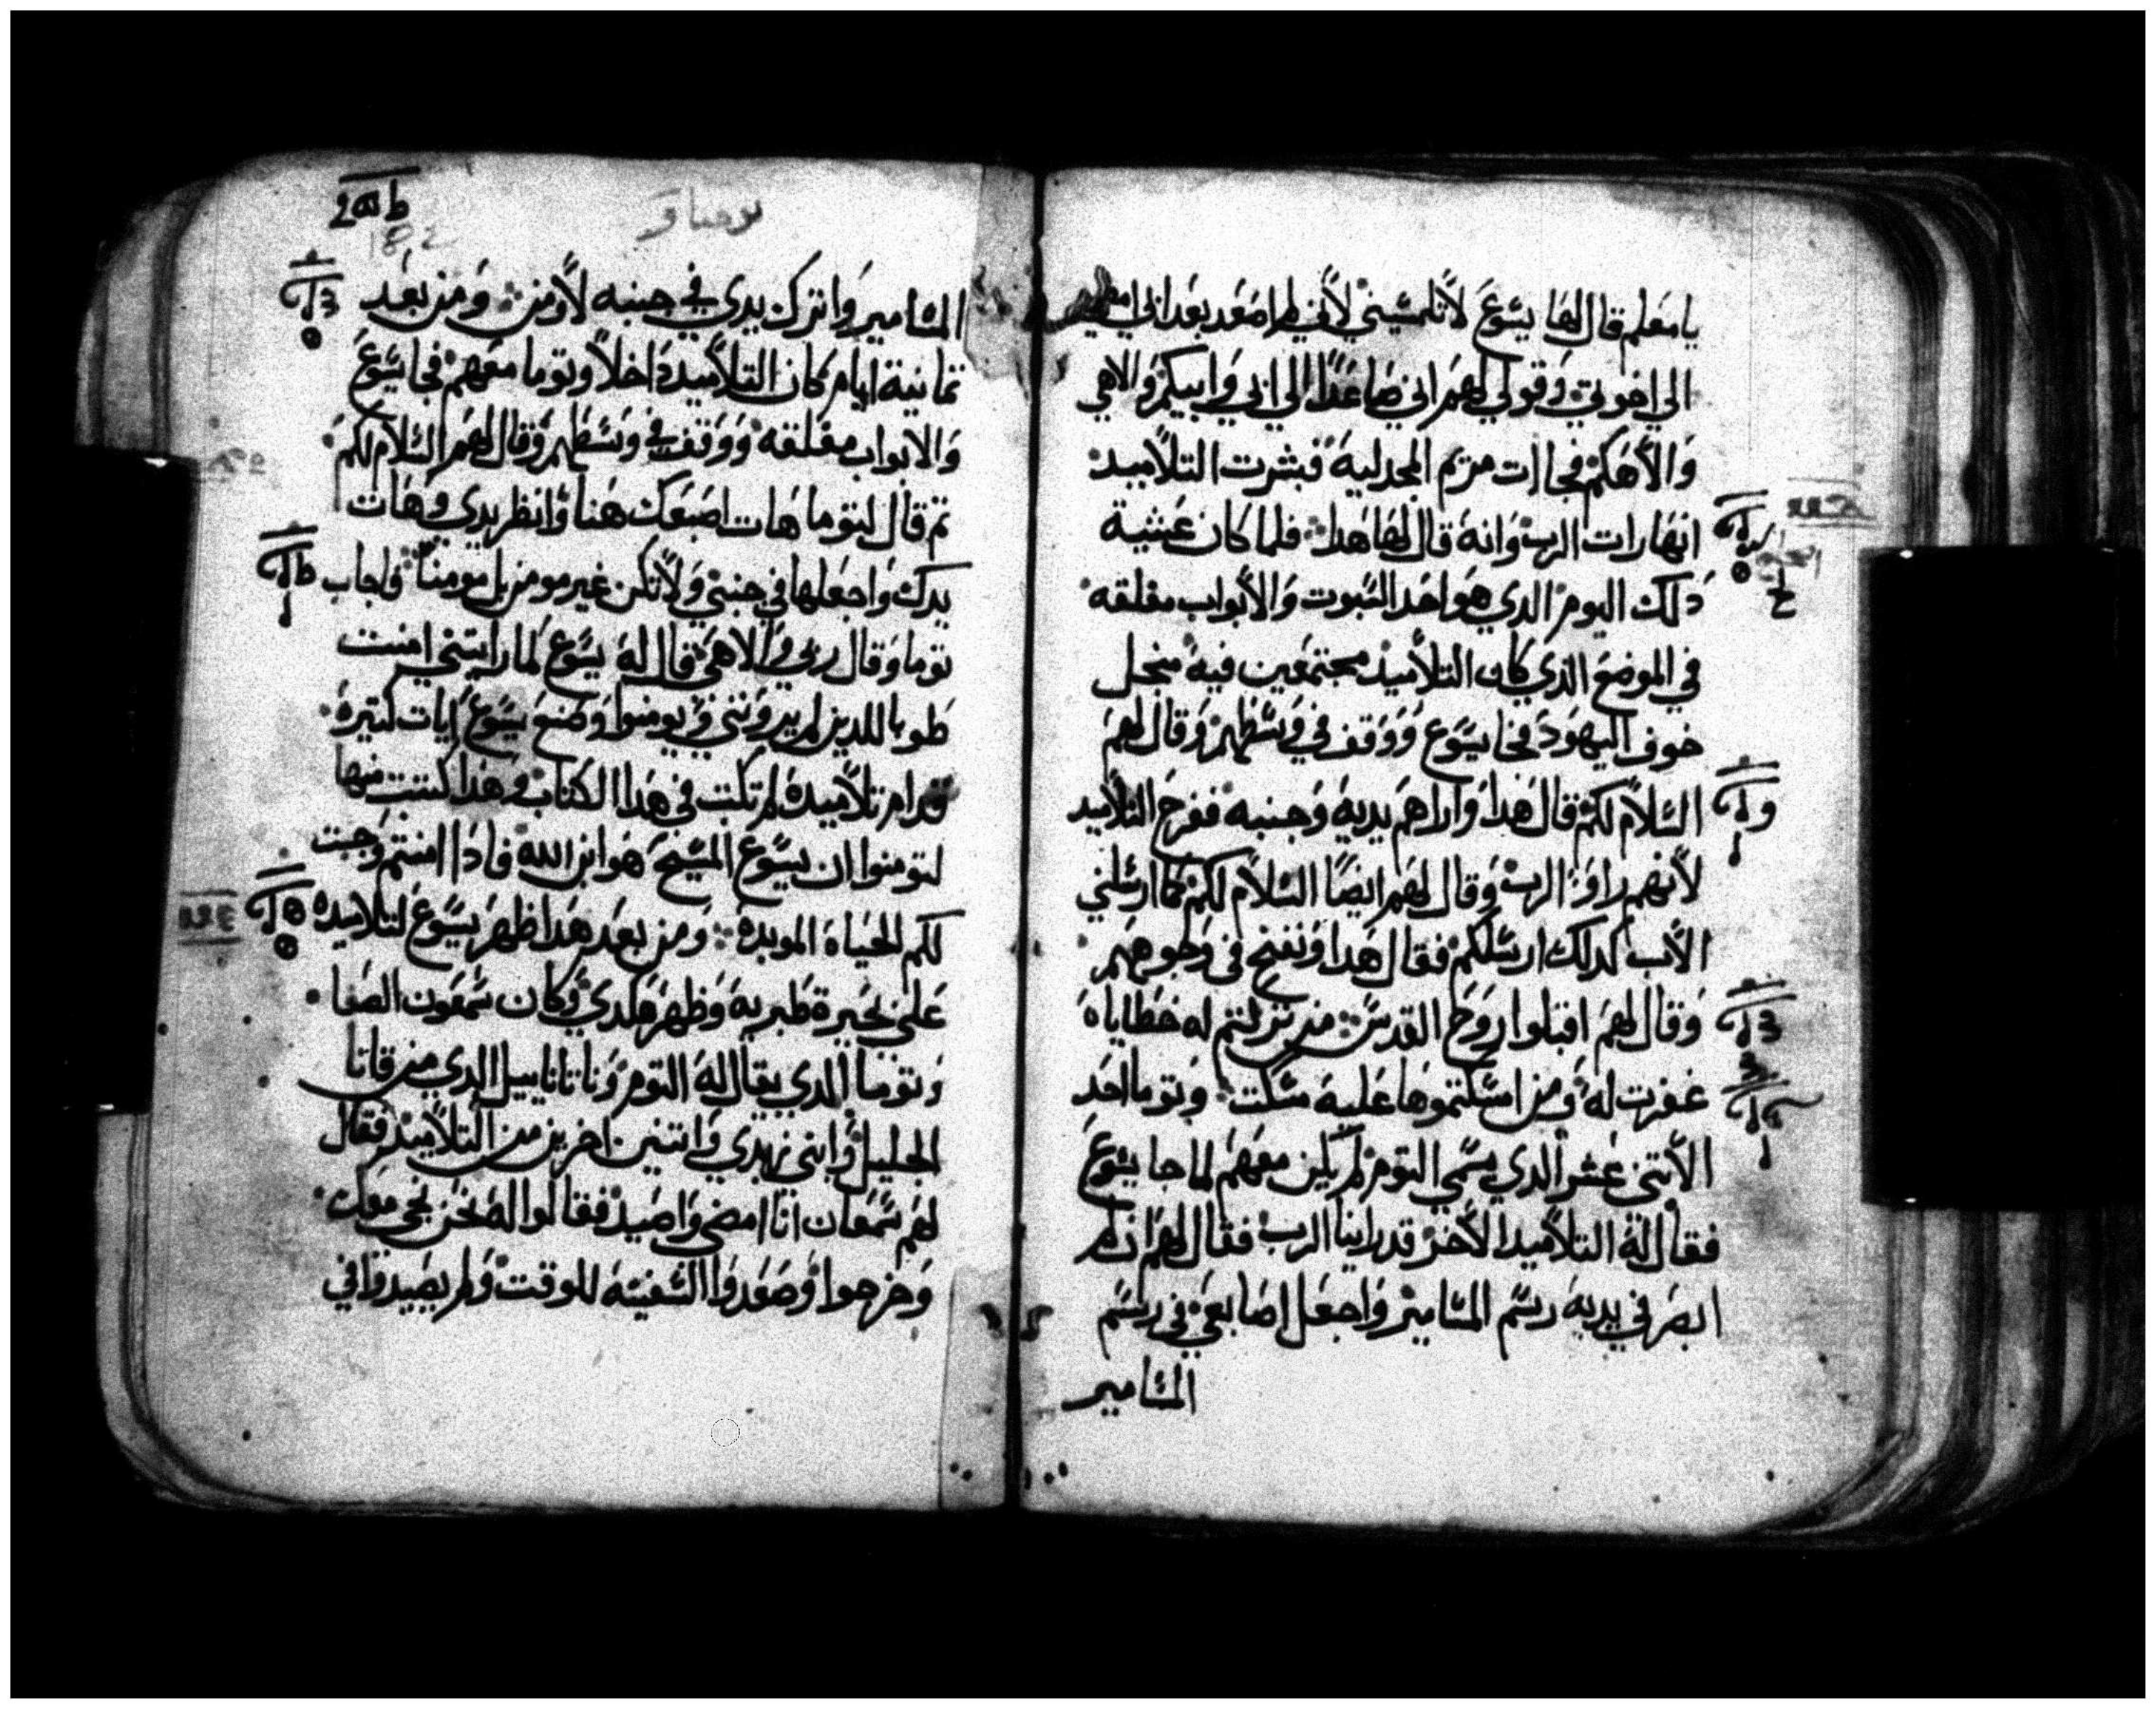 يا معلم قال لها يسوع لا تلمسيني لأني لم اصعد بعد الي ابي امضي
الي اخوتي وقولي لهم اني صاعدًا الي ابي وابيكم والاهي
والأهكم فجاات مريم المجدلية فبشرت التلاميد
انها رات الرب وانه قال لها هدا فلما كان عشية
دلك اليوم الدي هو احد السبوت والأبواب مغلقه
في الموضع الدي كان التلاميد مجتمعين فيه من اجل
خوف اليهود فجا يسوع ووقف في وسطهم وقال لهم
السلام لكم قال هدا واراهم يديه وجنبه ففرح التلاميد
لأنهم راوا الرب وقال لهم ايضًا السلام لكم كما ارسلني
الأب كدلك ارسلكم فقال هدا ونفخ في وجوههم
وقال لهم اقبلوا روح القدس من تركتم له خطاياه
غفرت له ومن امسكتموها عليه مسكت وتوما احد
الأتني عشر الدي يسمي التوم لم يكن معهم لما جا يسوع
فقال له التلاميد الأخر قد راينا الرب فقال لهم ان لم
ابصر في يديه رسم المسامير واجعل اصابعي في رسم
المسامير
يوحنا
182
المسامير واترك يدي في جنبه لأ اومن ومن بعد
تمانية ايام كان التلاميد داخلاً وتوما معهم فجا يسوع
والابواب مغلقه ووقف في وسطهم وقال لهم السلام لكم
تم قال لتوما هات اصبعك هنا وانظر يدي وهات
يدك واجعلها في جنبي ولا تكن غير مومن بل مومنًا فاجاب
توما وقال ربي والاهي قال له يسوع لما رايتني امنت
طوبا للدين لم يروني ويومنوا وصنع يسوع ايات كتيرة
قدام تلاميده لم تكتب في هدا الكتاب وهدا كتبت منها
لتومنوا ان يسوع المسيح هو ابن الله فادا امنتم وجبت
لكم الحياة الموبدة ومن بعد هدا ظهر يسوع لتلاميده
على بحيرة طبرية وظهر هكدي وكان سمعون الصفا
وتوما الدي يقال له التوم وناتاناييل الدي من قانا
الجليل وابني زبدي واتنين اخرين من التلاميد فقال
لهم سمعان انا امضي واصيد فقالوا له نحن نجي معك
وخرجوا وصعدوا السفينه للوقت ولم يصيدوا في